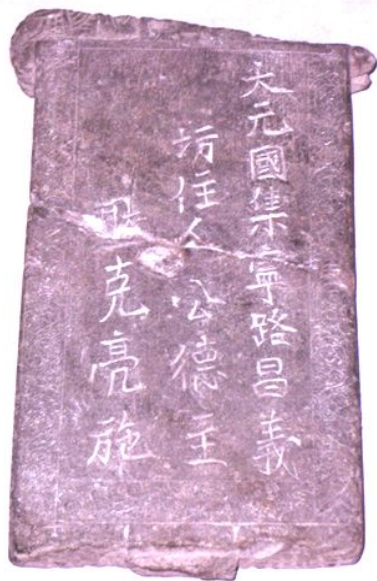 大元國集寧路昌義
坊住人公德主
克亮施